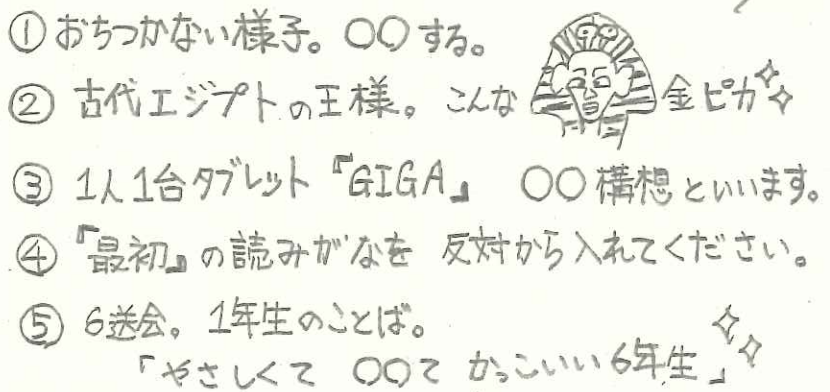 ① おちつかない様子。○○する。
② 古代エジプトの王様。こんな 金ピカ
③ 1人1台タブレット『GIGA』 ○○構想といいます。
④ 『最初』の読みがなを 反対から入れてください。
⑤ 6送会。1年生のことば。
「やさしくて ○○て かっこいい6年生」